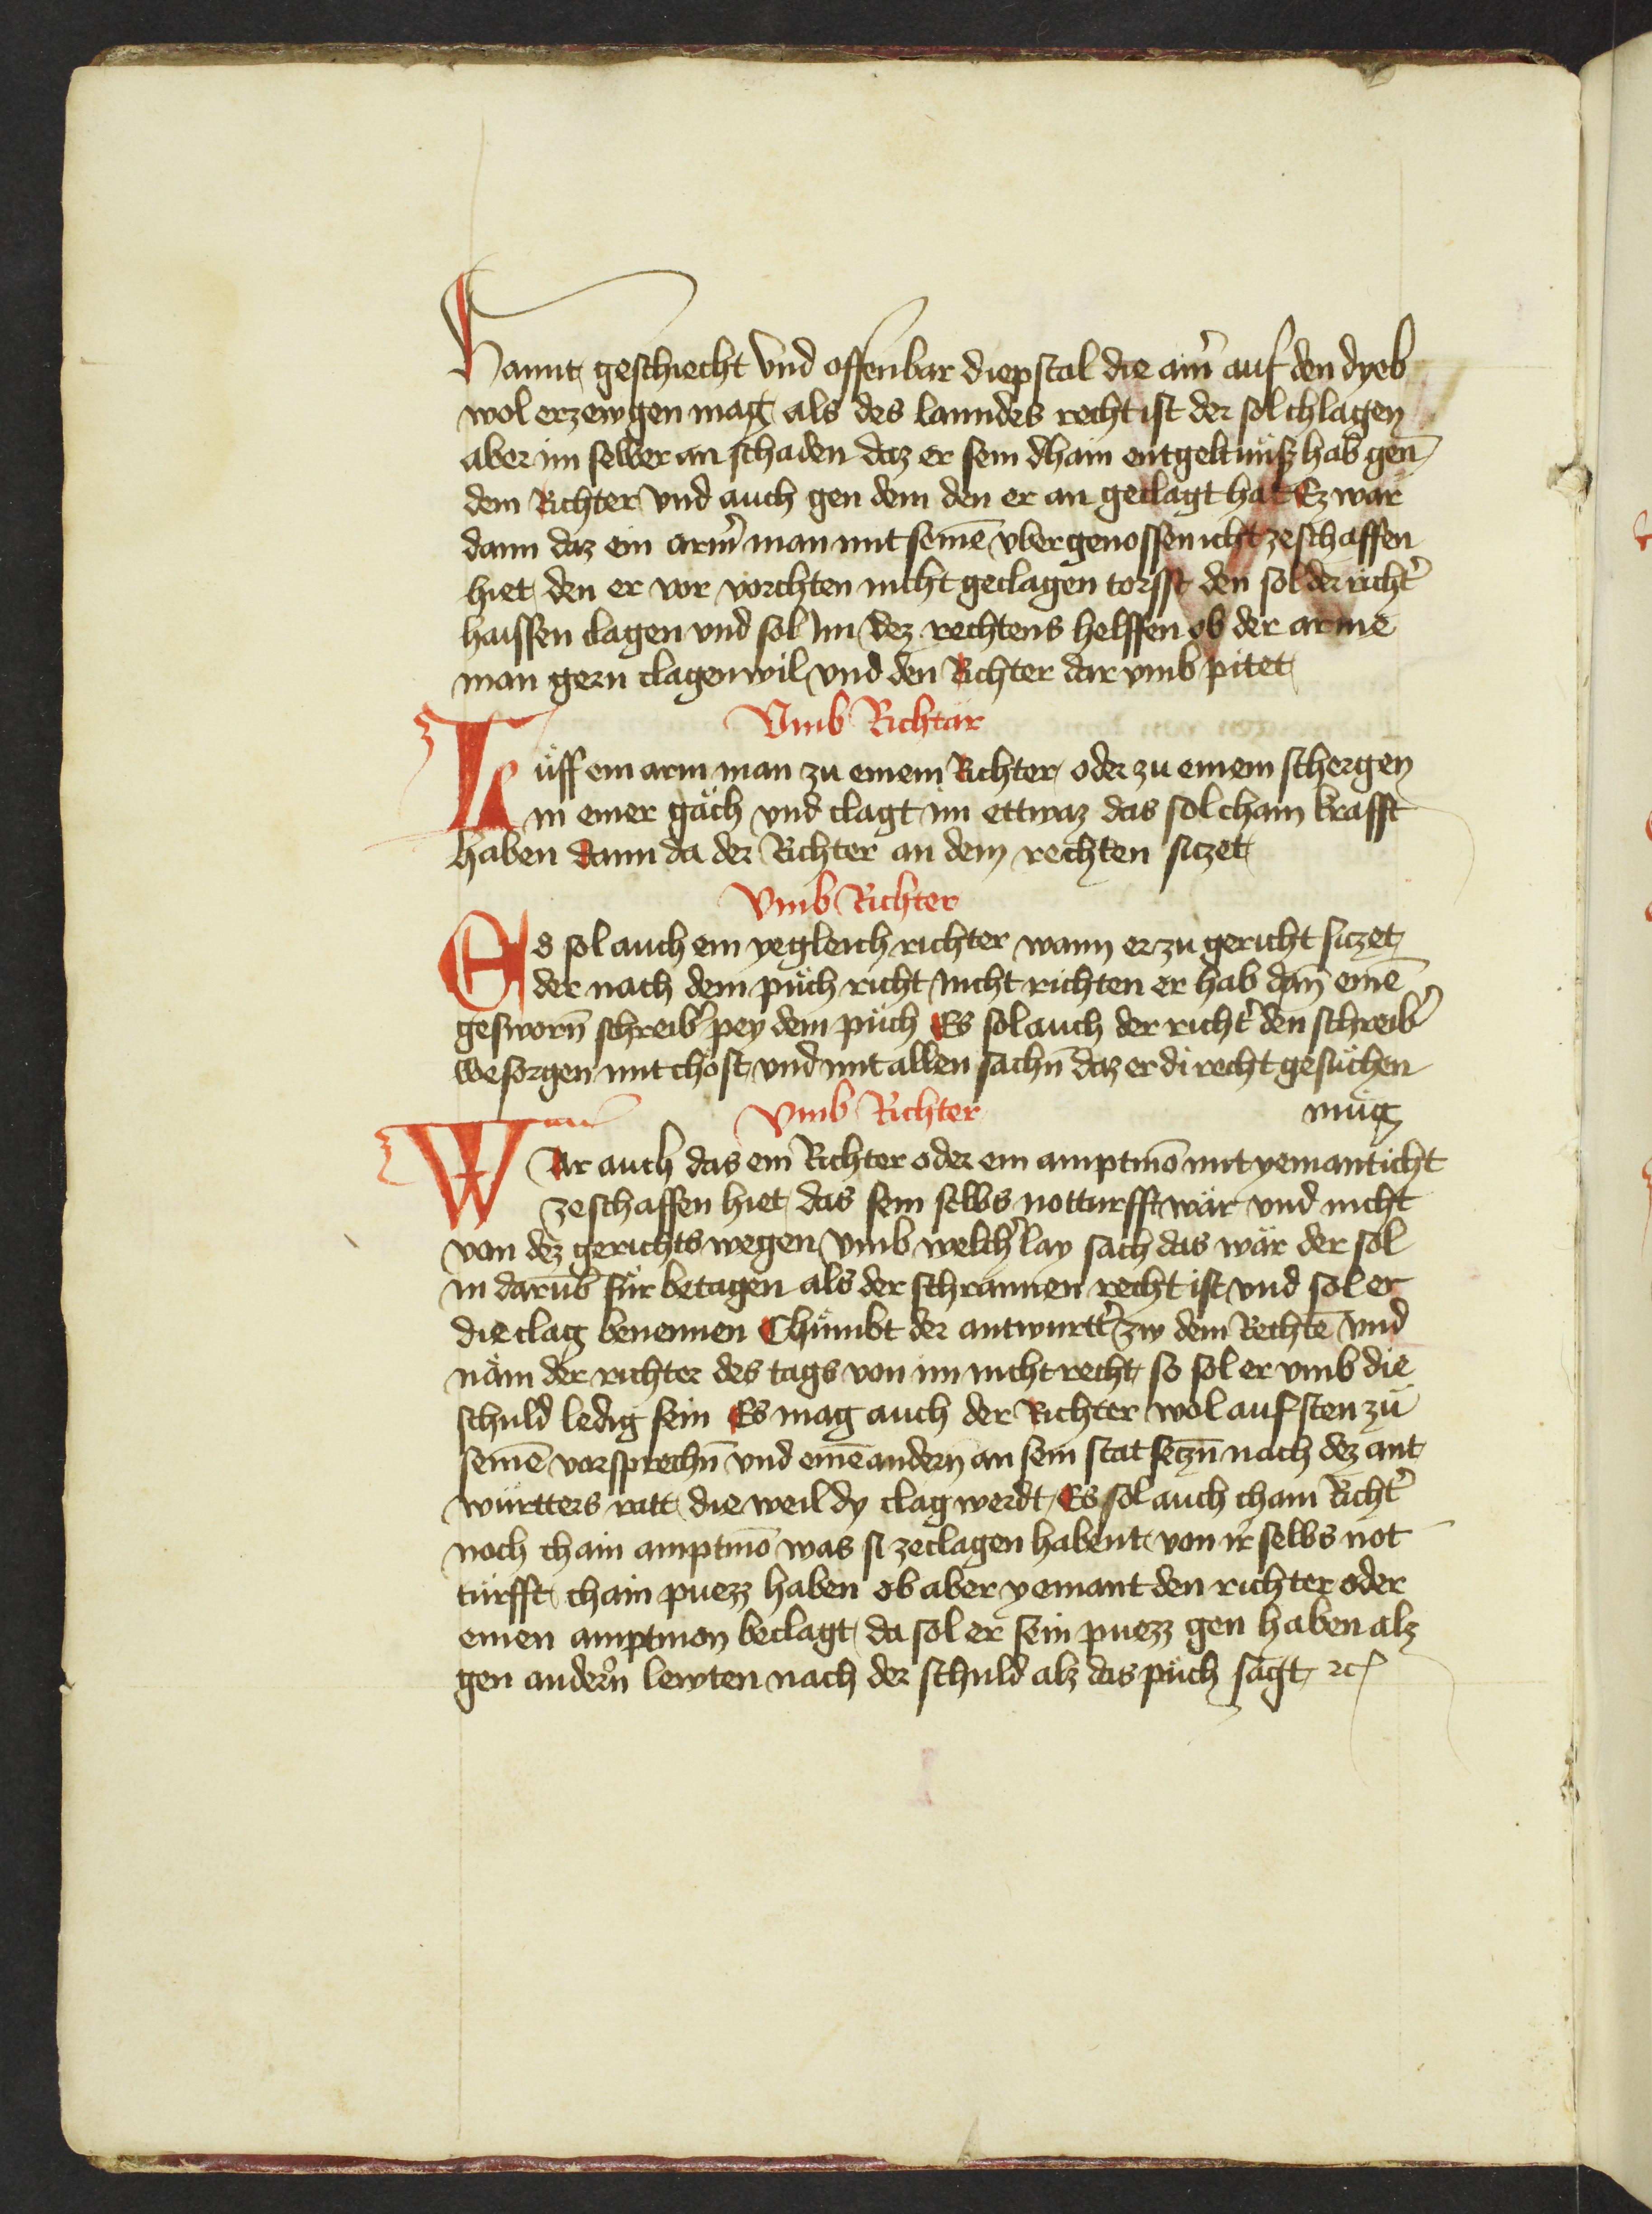 Hannt geschiecht vnd offenbar diepstal die ainˀ auf den dyeb
wol erzewgen mag als des lanndes recht ist der sol chlagen
aber im selber an schaden daz er sein dhain entgeltnüsz hab gen̄
dem Richter vnd auch gen dem den er an geclagt hat Ez wär
dann daz ein armˀ man mit seinē vbergenossen icht zeschaffen
hiet den er vor vorchten nicht geclagen torsst den sol der richtˀ
haissen clagen vnd sol im dez rechtens helffen ob der arme
man gern clagen wil vnd den Richter dar vmb pitet
Vmb Richtär
Lüff ein arm man zu einem Richter oder zu einem schergen
in einer gäch vnd clagt im ettwaz das sol chain krafft
haben dann da der Richter an dem rechten siczet
Vmb Richter
Es sol auch ein yegleich richter wann er zu gericht siczet
der nach dem püch richt nicht richten er hab dan̄ einē
gesworn̄ schreibˀ pey dem püch Es sol auch der richtˀ den schreibˀ
wesorgen mit chost vnd mit allen sachn̄ daz er di recht gesüchen
Vmb Richter müg
WAr auch das ein Richter oder ein amptmō mit yemant icht
zeschaffen hiet das sein selbs notturfft wär vnd nicht
von dez gerichts wegen vmb welchˀlay sach das wär der sol
in darūb für betagen als der schrannen recht ist vnd sol er
die clag benennen Chümbt der antwurttˀ zw dem Rechtē vnd
näm der richter des tags von im nicht recht so sol er vmb die
schuld ledig sein Es mag auch der Richter wol auf sten zü
seinē vorsprechn̄ vnd einē andern an sein stat seczn̄ nach dez ant
württers ratt die weil dy clag werdt Es sol auch chain Richtˀ
noch chain amptmō was si zeclagen habent von ir selbs not
türfft chain puezz haben ob aber yemant den richter oder
einen amptmon beclagt da sol er sein puezz gen haben alz
gen andern lewten nach der schuld alz das püch sagt ꝛc